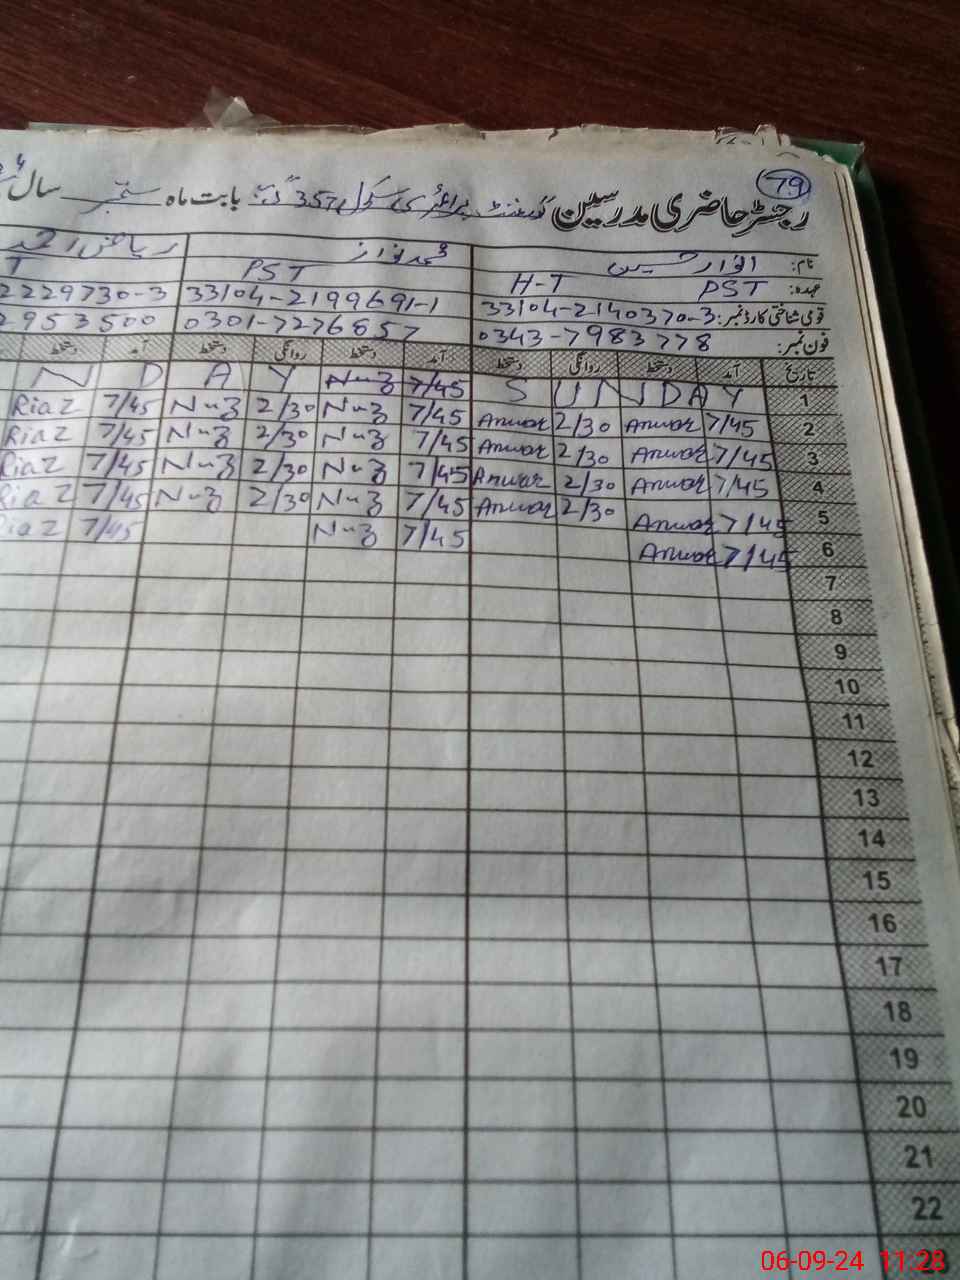 79
رجسٹر حاضری مدرسین گورنمنٹ پرائمری سکول 357 بابت ماہ ستمبر سال
نام: انوار حسین محمد نواز ریاض احمد
عہدہ: PST H-T PST T
قومی شناختی کارڈ نمبر: 33104-2140370-3 33104-2199691-1 2229730-3
فون نمبر: 0343-7983778 0301-7276857 2953500
تاریخ آمد دستخط روانگی دستخط آمد دستخط روانگی دستخط آمد دستخط
1 SUNDAY 7/45 N-z N D A Y
2 7/45 Anwar 2/30 Anwar 7/45 N-z 2/30 N-z 7/45 Riaz
3 7/45 Anwar 2/30 Anwar 7/45 N-z 2/30 N-z 7/45 Riaz
4 7/45 Anwar 2/30 Anwar 7/45 N-z 2/30 N-z 7/45 Riaz
5 7/45 Anwar 2/30 Anwar 7/45 N-z 2/30 N-z 7/45 Riaz
6 7/45 Anwar 7/45 N-z 7/45 Riaz
7
8
9
10
11
12
13
14
15
16
17
18
19
20
21
22
06-09-24 11:28